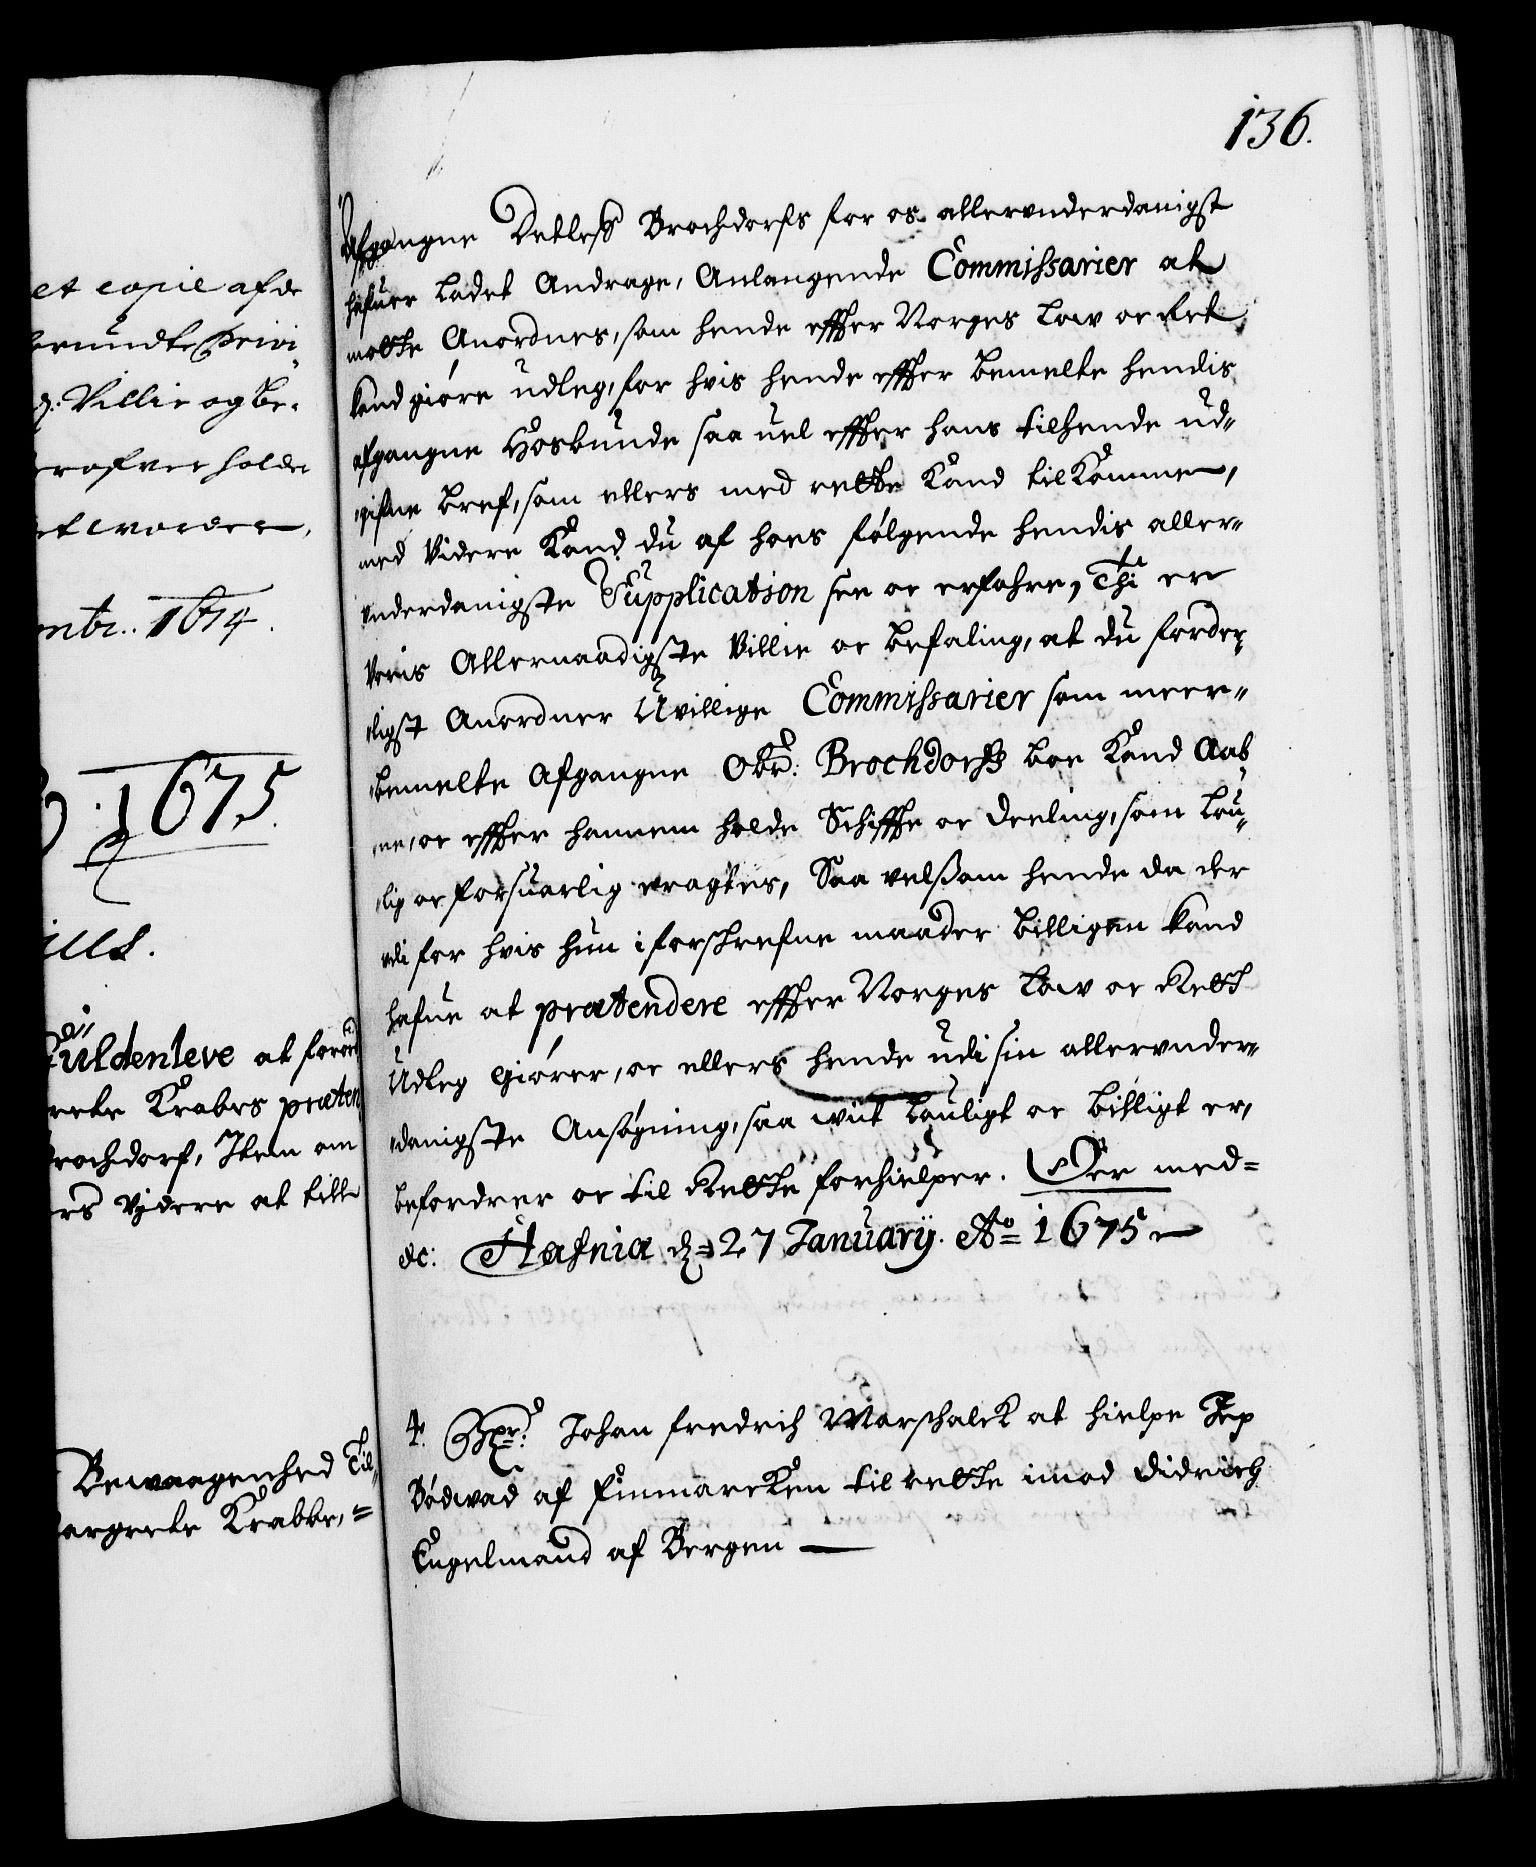 136.
Afgangne Detleff Brochdorfs for os allerunderdanigst
hafuer ladet Andrage, Anlangende Commissarier at
motte Anordnes, som hende effter Norges Low oc Ret
kand giøre udleg, for hvis hende effter bemelte hendis
afgangne Hosbunde saa uel effter hans tilhende ud-
gifne bref, som ellers med rette Kand tilkomme,
med Videre Kand du af hoes følgende hendis aller-
underdanigste Supplication see oc erfahre, Thi er
Voris Allernaadigste Villie oc befaling, at du forder-
ligst Anordner Uvillige Commissarier som meer-
bemelte Afgangne Obr: Brochdorffs boe Kand Aab
ne, oc effter hannem holde Schiffte oc deeling, som lou-
lig oc forsuarlig eragtes, Saa velsom hende da der
udi for hvis hun i forschrefne maader billigen kand
hafue at prætendere effter Norges Low oc Rett
Udleg giører, oc ellers hende udi sin allerunder-
danigste Ansøgning, saa wiit louligt oc billigt er,
befordrer oc til Rette forhielper. Der med-
etc: Hafniæ d. 27 Januarij. Ao 1675
4. Johan fredrich Marschalck at hielpe Jep
Sødwad af Finmarcken til rette imod Didrich
Engelmand af Bergen
et copie af de
grundte Privi
Villie og be-
erofver holde
et worder,
mbr. 1674.
1675.
Güldenleve at forord
rete Krabes præten
rochdorf, Item om
rs videre at till
Bewaagenhed Til-
argrete Krabbe,